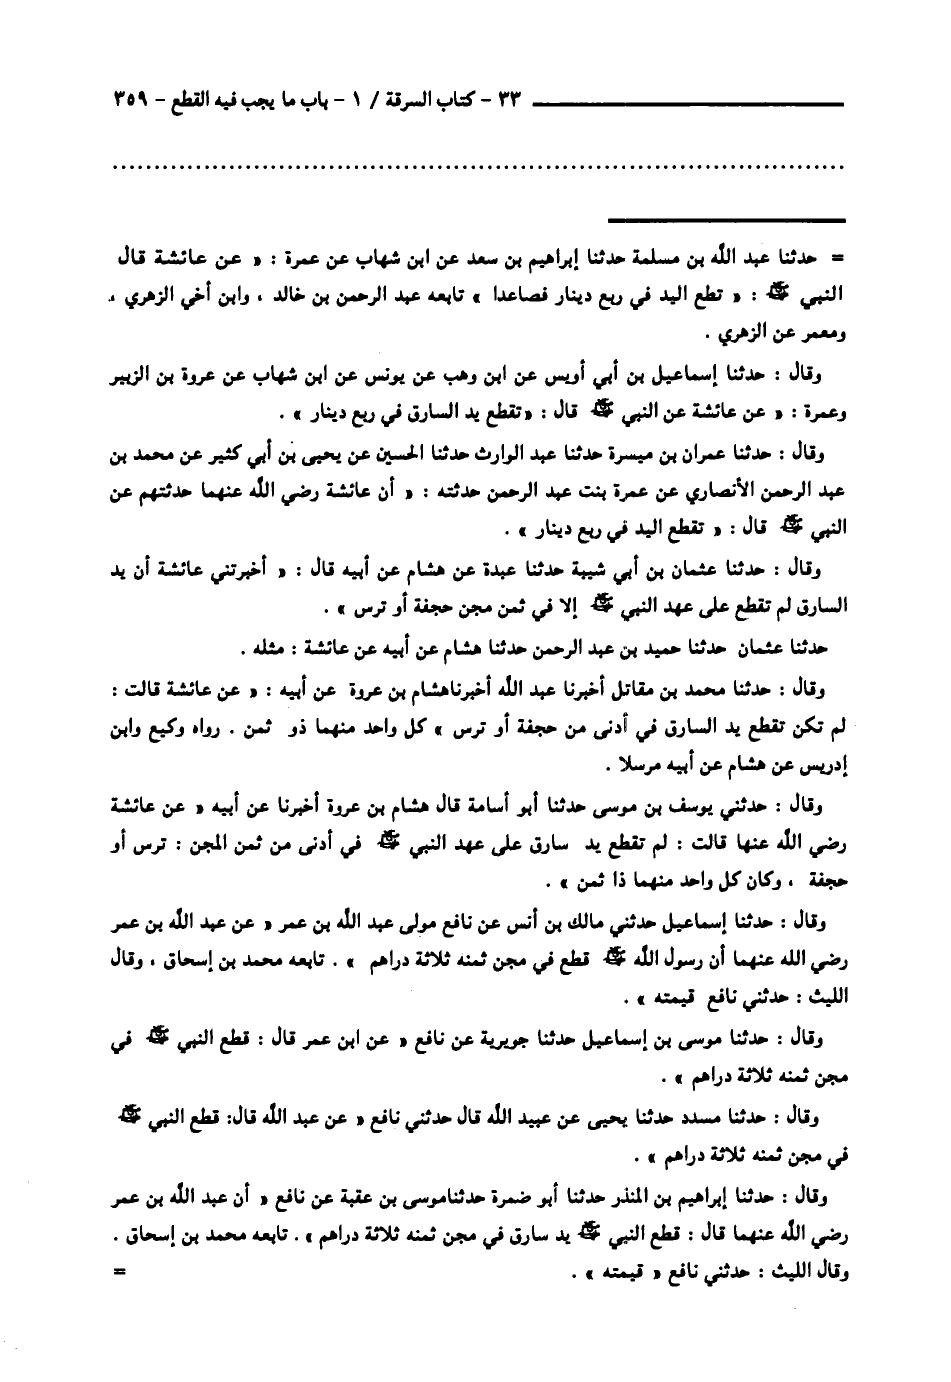 ٣٣ - كتاب السرقة / ١ - باب ما يجب فيه القطع - ٣٥٩
= حدثنا عبد الله بن مسلمة حدثنا إبراهيم بن سعد عن ابن شهاب عن عمرة : « عن عائشة قال
النبي ﷺ : « تطع اليد في ربع دينار فصاعدا » تابعه عبد الرحمن بن خالد ، وابن أخي الزهري ،
ومعمر عن الزهري .
وقال : حدثنا إسماعيل بن أبي أويس عن ابن وهب عن يونس عن ابن شهاب عن عروة بن الزبير
وعمرة : « عن عائشة عن النبي ﷺ قال : «تقطع يد السارق في ربع دينار » .
وقال : حدثنا عمران بن ميسرة حدثنا عبد الوارث حدثنا الحسين عن يحيى بن أبي كثير عن محمد بن
عبد الرحمن الأنصاري عن عمرة بنت عبد الرحمن حدثته : « أن عائشة رضي الله عنهما حدثتهم عن
النبي ﷺ قال : « تقطع اليد في ربع دينار » .
وقال : حدثنا عثمان بن أبي شيبة حدثنا عبدة عن هشام عن أبيه قال : « أخبرتني عائشة أن يد
السارق لم تقطع على عهد النبي ﷺ إلا في ثمن مجن حجفة أو ترس » .
حدثنا عثمان حدثنا حميد بن عبد الرحمن حدثنا هشام عن أبيه عن عائشة : مثله .
وقال : حدثنا محمد بن مقاتل أخبرنا عبد الله أخبرناهشام بن عروة عن أبيه : « عن عائشة قالت :
لم تكن تقطع يد السارق في أدنى من حجفة أو ترس » كل واحد منهما ذو ثمن . رواه وكيع وابن
إدريس عن هشام عن أبيه مرسلا .
وقال : حدثني يوسف بن موسى حدثنا أبو أسامة قال هشام بن عروة أخبرنا عن أبيه « عن عائشة
رضي الله عنها قالت : لم تقطع يد سارق على عهد النبي ﷺ في أدنى من ثمن المجن : ترس أو
حجفة ، وكان كل واحد منهما ذا ثمن » .
وقال : حدثنا إسماعيل حدثني مالك بن أنس عن نافع مولى عبد الله بن عمر « عن عبد الله بن عمر
رضي الله عنهما أن رسول الله ﷺ قطع في مجن ثمنه ثلاثة دراهم » . تابعه محمد بن إسحاق ، وقال
الليث : حدثني نافع قيمته » .
وقال : حدثنا موسى بن إسماعيل حدثنا جويرية عن نافع « عن ابن عمر قال : قطع النبي ﷺ في
مجن ثمنه ثلاثة دراهم » .
وقال : حدثنا مسدد حدثنا يحيى عن عبيد الله قال حدثني نافع « عن عبد الله قال: قطع النبي ﷺ
في مجن ثمنه ثلاثة دراهم » .
وقال : حدثنا إبراهيم بن المنذر حدثنا أبو ضمرة حدثناموسى بن عقبة عن نافع « أن عبد الله بن عمر
رضي الله عنهما قال : قطع النبي ﷺ يد سارق في مجن ثمنه ثلاثة دراهم » . تابعه محمد بن إسحاق .
وقال الليث : حدثني نافع « قيمته » . =